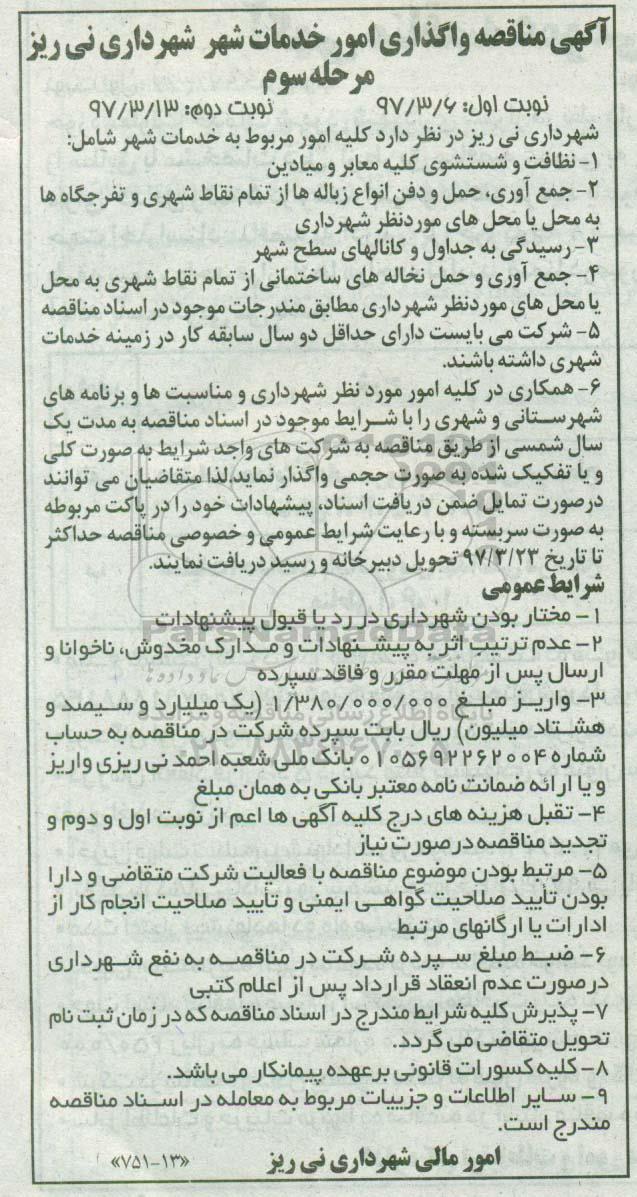 آگهی مناقصه واگذاری امور خدمات شهر شهرداری نی ریز
مرحله سوم
نوبت اول: ۹۷/۳/۶ نوبت دوم: ۹۷/۳/۱۳
شهرداری نی ریز در نظر دارد کلیه امور مربوط به خدمات شهر شامل:
۱- نظافت و شستشوی کلیه معابر و میادین
۲- جمع آوری، حمل و دفن انواع زباله ها از تمام نقاط شهری و تفرجگاه ها
به محل یا محل های موردنظر شهرداری
۳- رسیدگی به جداول و کانالهای سطح شهر
۴- جمع آوری و حمل نخاله های ساختمانی از تمام نقاط شهری به محل
یا محل های موردنظر شهرداری مطابق مندرجات موجود در اسناد مناقصه
۵- شرکت می بایست دارای حداقل دو سال سابقه کار در زمینه خدمات
شهری داشته باشند.
۶- همکاری در کلیه امور مورد نظر شهرداری و مناسبت ها و برنامه های
شهرستانی و شهری را با شرایط موجود در اسناد مناقصه به مدت یک
سال شمسی از طریق مناقصه به شرکت های واجد شرایط به صورت کلی
و یا تفکیک شده به صورت حجمی واگذار نماید.لذا متقاضیان می توانند
درصورت تمایل ضمن دریافت اسناد، پیشنهادات خود را در پاکت مربوطه
به صورت سربسته و با رعایت شرایط عمومی و خصوصی مناقصه حداکثر
تا تاریخ ۹۷/۳/۲۳ تحویل دبیرخانه و رسید دریافت نمایند.
شرایط عمومی
۱- مختار بودن شهرداری در رد یا قبول پیشنهادات
۲- عدم ترتیب اثر به پیشنهادات و مدارک مخدوش، ناخوانا و
ارسال پس از مهلت مقرر و فاقد سپرده
۳- واریز مبلغ ۱/۳۸۰/۰۰۰/۰۰۰ (یک میلیارد و سیصد و
هشتاد میلیون) ریال بابت سپرده شرکت در مناقصه به حساب
شماره ۰۱۰۵۶۹۲۲۶۲۰۰۴ بانک ملی شعبه احمد نی ریزی واریز
و یا ارائه ضمانت نامه معتبر بانکی به همان مبلغ
۴- تقبل هزینه های درج کلیه آگهی ها اعم از نوبت اول و دوم و
تجدید مناقصه درصورت نیاز
۵- مرتبط بودن موضوع مناقصه با فعالیت شرکت متقاضی و دارا
بودن تایید صلاحیت گواهی ایمنی و تایید صلاحیت انجام کار از
ادارات یا ارگانهای مرتبط
۶- ضبط مبلغ سپرده شرکت در مناقصه به نفع شهرداری
درصورت عدم انعقاد قرارداد پس از اعلام کتبی
۷- پذیرش کلیه شرایط مندرج در اسناد مناقصه که در زمان ثبت نام
تحویل متقاضی می گردد.
۸- کلیه کسورات قانونی برعهده پیمانکار می باشد.
۹- سایر اطلاعات و جزییات مربوط به معامله در اسناد مناقصه
مندرج است.
امور مالی شهرداری نی ریز «۷۵۱-۱۳»
ParsNamadData
پایگاه اطلاع رسانی مناقصه و مزایده